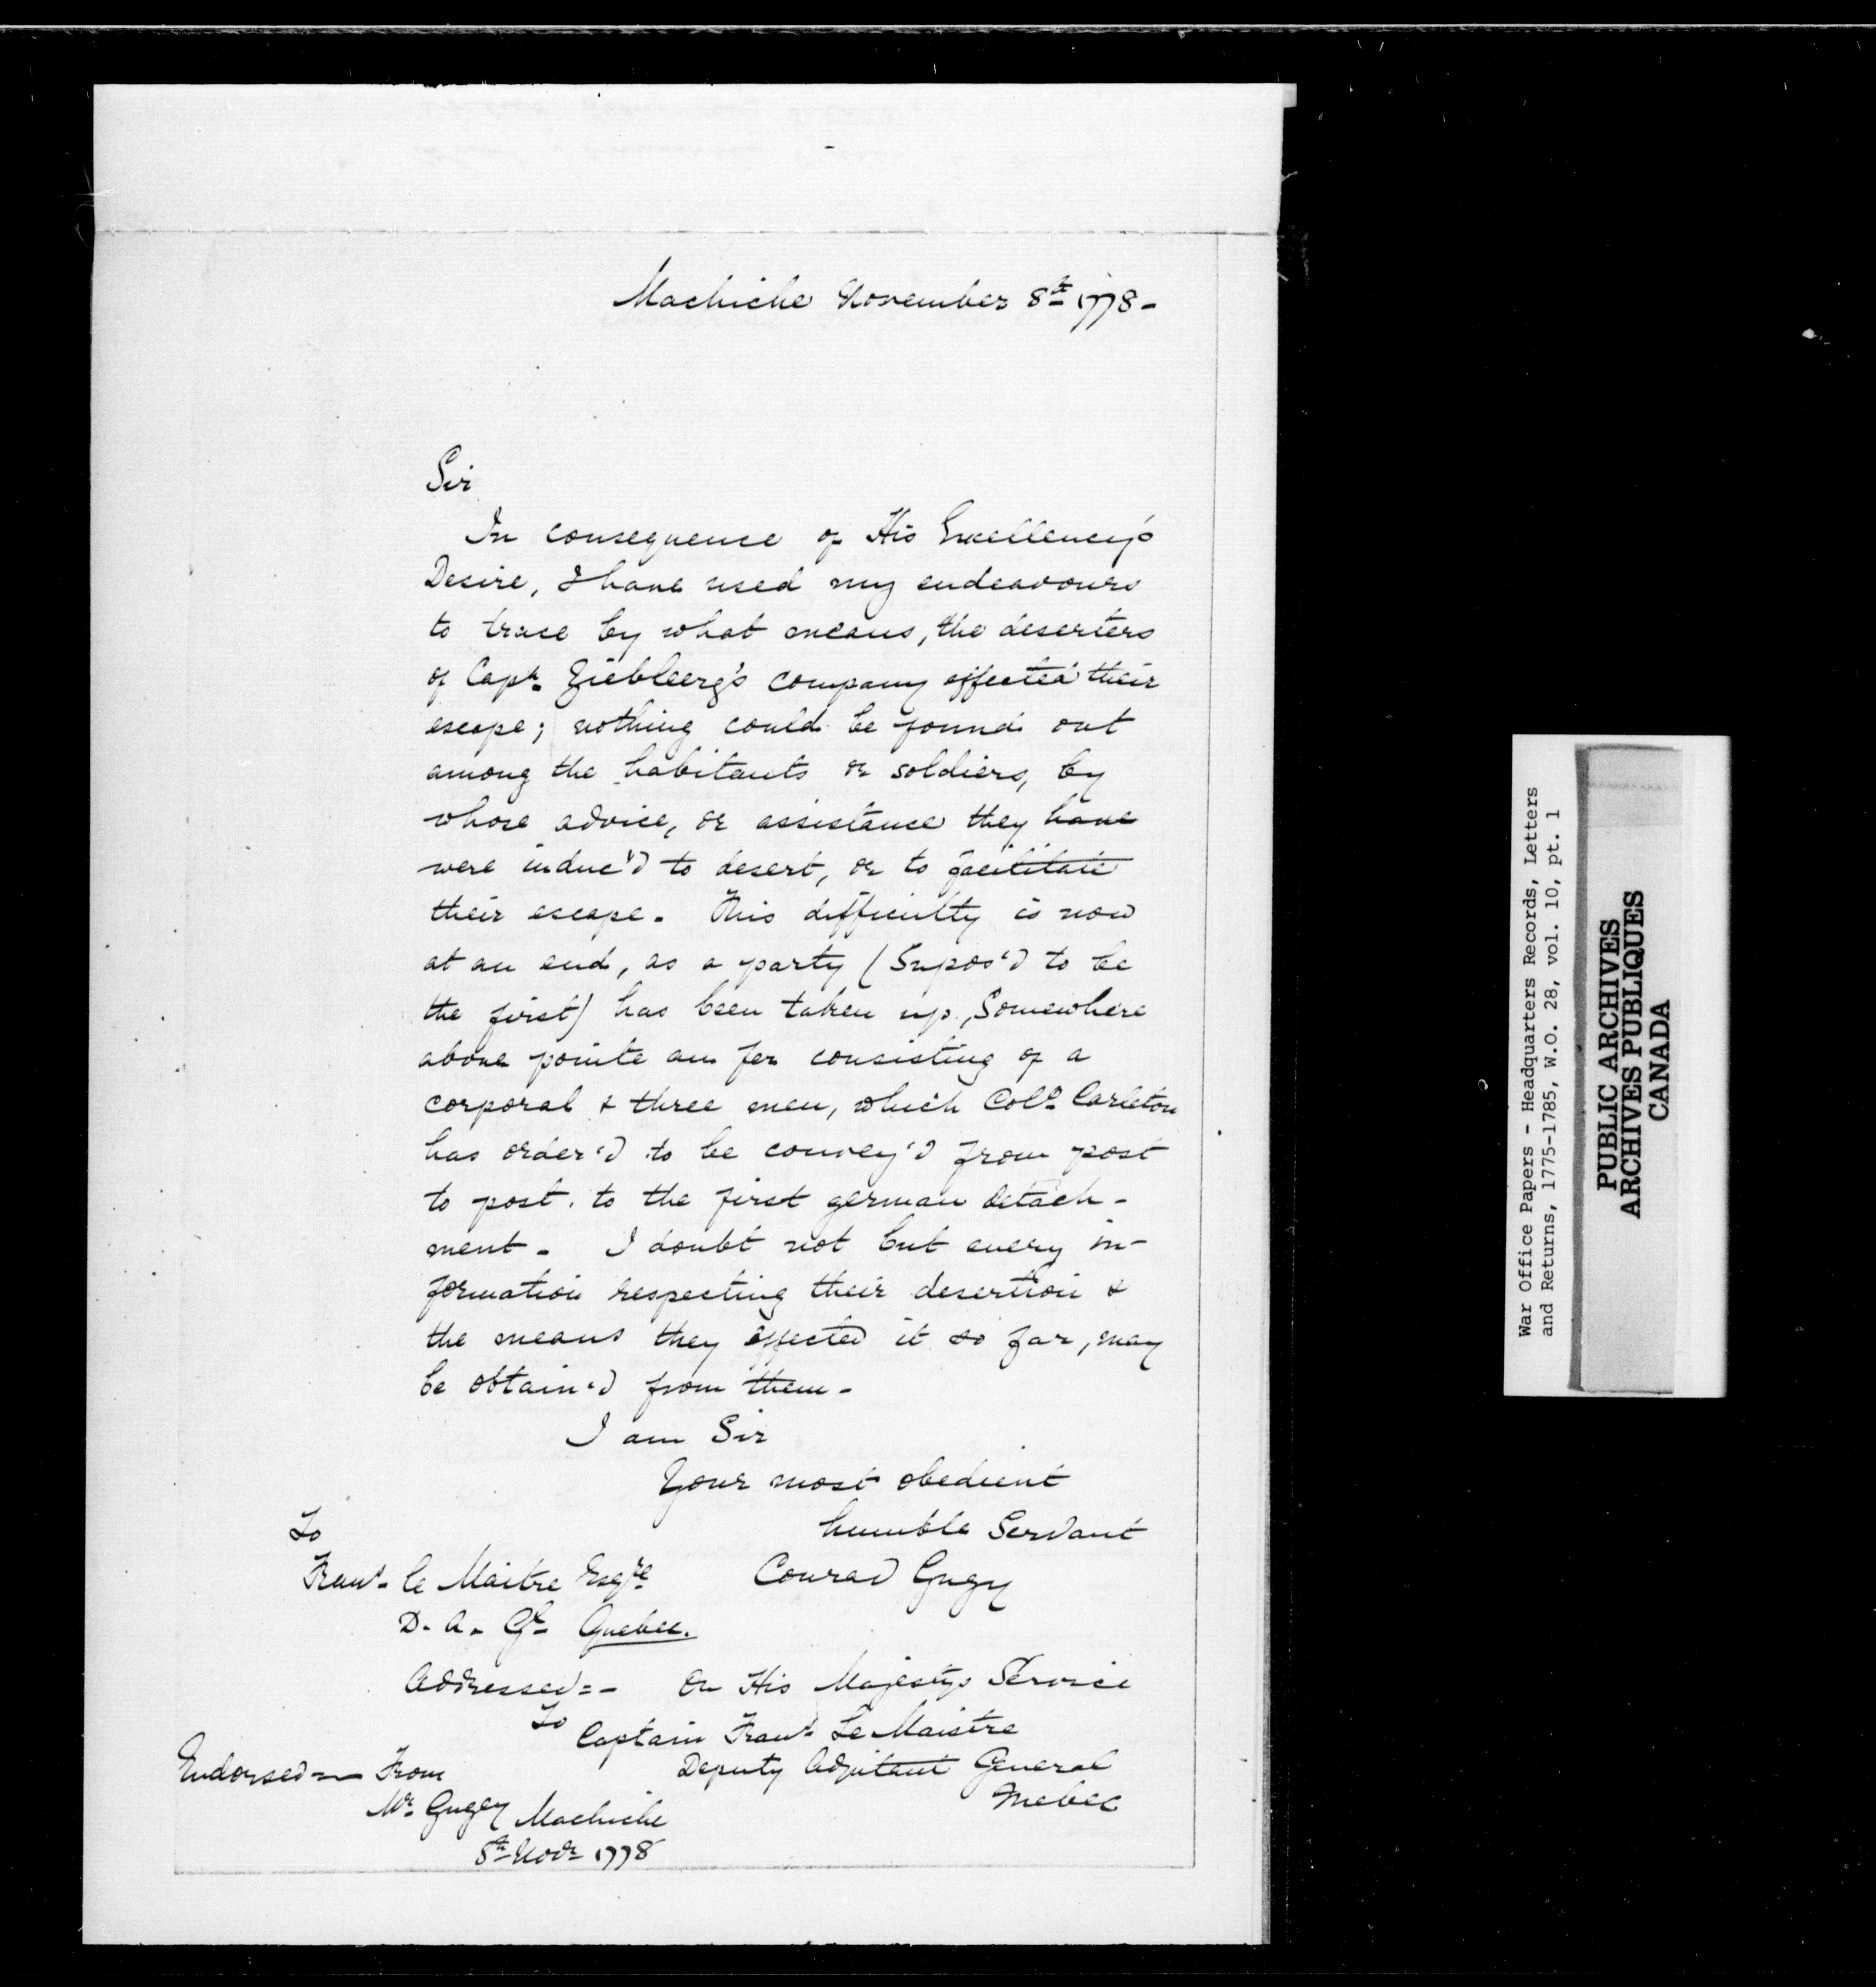 Machiche November 8th 1778-
Sir
In consequence of His Excellency's
Desire, I have used my endeavours
to trace by what means, the deserters
of Capt. Ziebleerg's company effected their
escape; nothing could be found out
among the habitants or soldiers, by
whose advice, or assistance they have
were induc'd to desert, or to facilitate
their escape. This difficulty is now
at an end, as a party (Supos'd to be
the first) has been taken up, Somewhere
above pointe au fer consisting of a
corporal & three men, which Colo. Carleton
has order'd to be convey'd from post
to post. to the first german detach-
ment. I doubt not but every in-
formation respecting their desertion &
the means they effected it so far, may
be obtain'd from them-
I am Sir
Your most obedient
humble Servant
Conrad Gugy
To
Frans. le Maitre Esqre.
D. A. Gl. Quebec.
Addressed=- On His Majestys Service
To Captain Frans. Le Maistre
Deputy Adjutant General
Quebec
Endorsed=- From
Mr. Gugey Machiche
8th Novr. 1778
War Office Papers - Headquarters Records, Letters
and Returns, 1775-1785, W.O. 28, vol. 10, pt. 1
PUBLIC ARCHIVES
ARCHIVES PUBLIQUES
CANADA